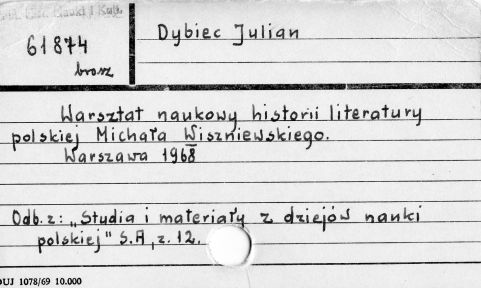 61874
brosz
Dybiec Julian
Warsztat naukowy historii literatury
polskiej Michała Wiszniewskiego.
Warszawa 1968
Odb. z: „Studia i materiały z dziejów nauki
polskiej" S.A, z. 12.
DUJ 1078/69 10.000